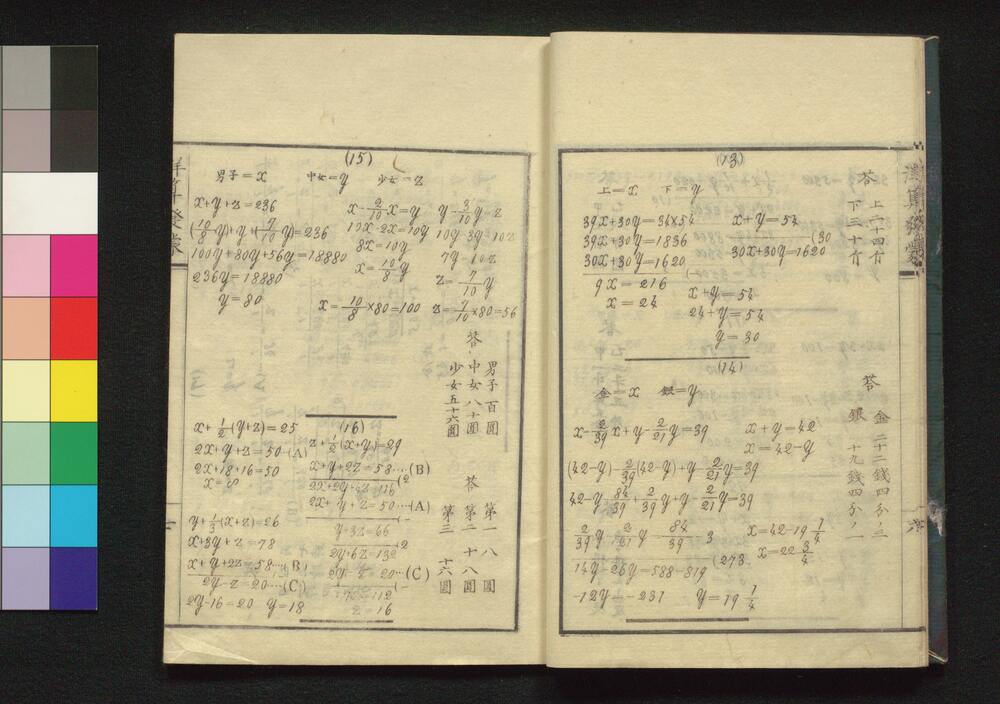 (13)
上=x 下=y
39x+30y=34×54
x+y=54
39x+30y=1836
(30
30x+30y=1620
30x+30y=1620
(-
9x=216
x=24
x+y=54
24+y=54
y=30
答 上二十四斤
下三十斤
(14)
金=x 銀=y
x-2/39x+y-2/21y=39
x+y=42
x=42-y
(42-y)-2/39(42-y)+y-2/21y=39
42-y-84/39+2/39y+y-2/21y=39
2/39y-2/21y=84/39-3
(273
14y-26y=588-819
-12y=-231
y=19 1/4
x=42-19 1/4
x=22 3/4
答 金 二十二錢四分ノ三
銀 十九錢四分ノ一
六
(15)
男子=x 中女=y 少女=z
x+y+z=236
(10/8y)+y+(7/10y)=236
100y+80y+56y=18880
236y=18880
y=80
x-2/10x=y
10x-2x=10y
8x=10y
x=10/8y
y-3/10y=z
10y-3y=10z
7y=10z
z=7/10y
x=10/8×80=100
z=7/10×80=56
答 男子百圓
中女八十圓
少女五十六圓
(16)
x+1/2(y+z)=25
2x+y+z=50…(A)
2x+18+16=50
x=8
y+1/3(x+z)=26
x+3y+z=78
x+y+2z=58…(B)
2y-z=20…(C)
2y-16=20 y=18
z+1/2(x+y)=29
x+y+2z=58…(B)
(2
2x+2y+4z=116
2x+y+z=50…(A)
(-
y+3z=66
(2
2y+6z=132
2y-z=20…(C)
(-
7z=112
z=16
答 第一 八圓
第二 十八圓
第三 十六圓